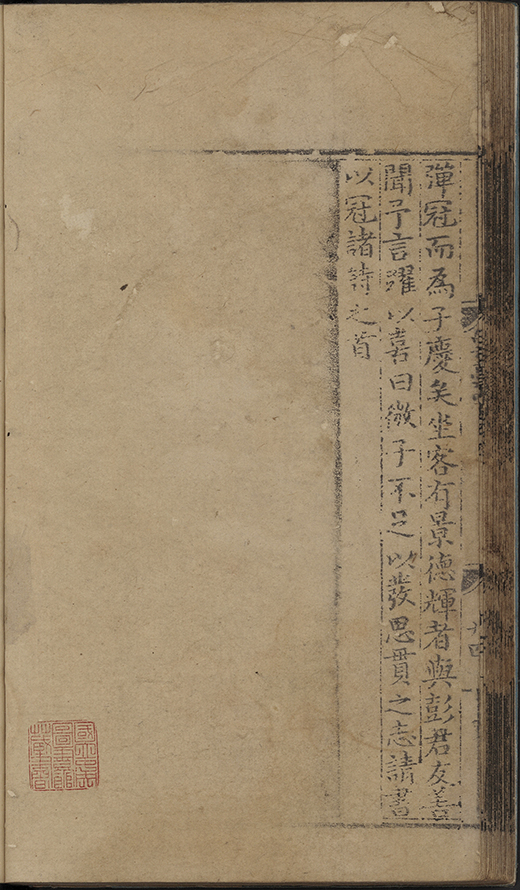 彈冠而為子慶矣坐客有景德輝者與彭君友善
聞予言躍以喜曰微子不足以發思貫之志請書
以冠諸詩之首